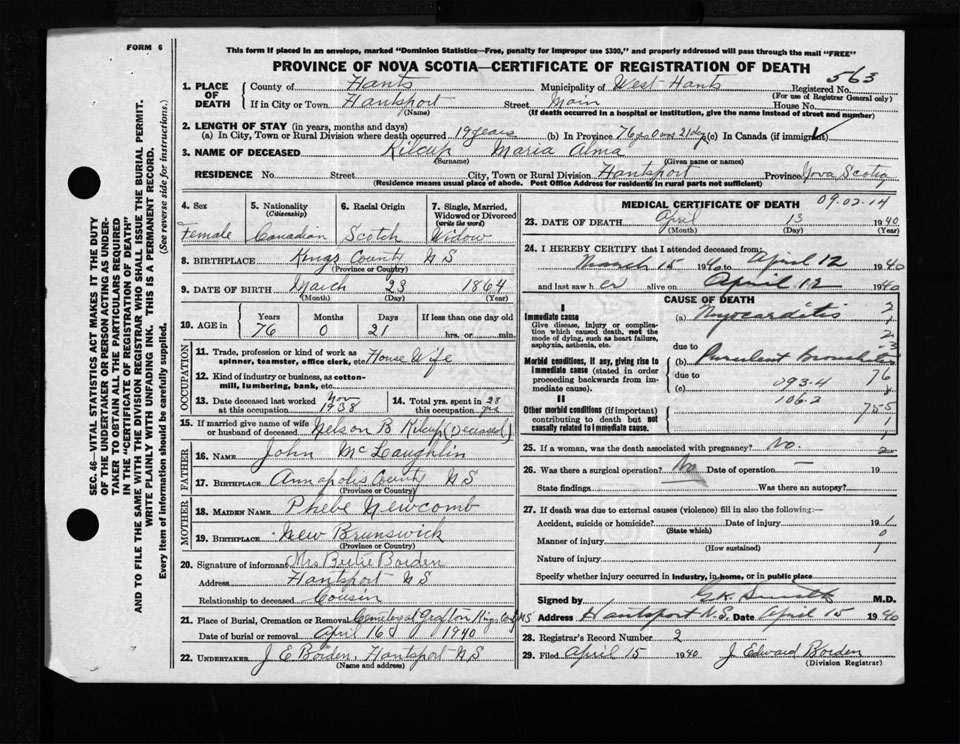 FORM 6
This form if placed in an envelope, marked "Dominion Statistics—Free, penalty for improper use $300," and properly addressed will pass through the mail "FREE"
PROVINCE OF NOVA SCOTIA—CERTIFICATE OF REGISTRATION OF DEATH
563
1. PLACE OF DEATH
County of Hants Municipality of West Hants Registered No.
(For use of Registrar General only)
If in City or Town Hantsport Street Main House No.
(Name) (If death occurred in a hospital or institution, give the name instead of street and number)
2. LENGTH OF STAY (in years, months and days)
(a) In City, Town or Rural Division where death occurred 19 years (b) In Province 76 yrs 0 mos 21 dys (c) In Canada (if immigrant)
3. NAME OF DECEASED Kilcup Maria Alma
(Surname) (Given name or names)
RESIDENCE No. Street City, Town or Rural Division Hantsport Province Nova Scotia
(Residence means usual place of abode. Post Office Address for residents in rural parts not sufficient)
4. Sex 5. Nationality (Citizenship) 6. Racial Origin 7. Single, Married, Widowed or Divorced (write the word)
Female Canadian Scotch Widow
8. BIRTHPLACE Kings County N S
(Province or Country)
9. DATE OF BIRTH March 23 1864
(Month) (Day) (Year)
10. AGE in Years Months Days If less than one day old
76 0 21 hrs. or min.
OCCUPATION
11. Trade, profession or kind of work as spinner, teamster, office clerk, etc. House Wife
12. Kind of industry or business, as cotton-mill, lumbering, bank, etc.
13. Date deceased last worked at this occupation Nov 1938 14. Total yrs. spent in this occupation 28
15. If married give name of wife or husband of deceased Nelson B Kilcup (Deceased)
FATHER
16. NAME John McLaughlin
17. BIRTHPLACE Annapolis County N S
(Province or Country)
MOTHER
18. MAIDEN NAME Phebe Newcomb
19. BIRTHPLACE New Brunswick
(Province or Country)
20. Signature of informant Mrs Bertie Borden
Address Hantsport N S
Relationship to deceased Cousin
21. Place of Burial, Cremation or Removal Cemetery at Grafton Kings Co NS
Date of burial or removal April 16 1940
22. UNDERTAKER J E Borden, Hantsport N S
(Name and address)
MEDICAL CERTIFICATE OF DEATH 09.02.14
23. DATE OF DEATH April 13 1940
(Month) (Day) (Year)
24. I HEREBY CERTIFY that I attended deceased from:
March 15 1940 to April 12 1940
and last saw her alive on April 12 1940
CAUSE OF DEATH
I
Immediate cause
Give disease, injury or complication which caused death, not the mode of dying, such as heart failure, asphyxia, asthenia, etc.
(a) Myocarditis
due to
Morbid conditions, if any, giving rise to immediate cause (stated in order proceeding backwards from immediate cause).
(b) Purulent Bronchitis
due to
76
(c) 093.4
106.2
II
Other morbid conditions (if important) contributing to death but not causally related to immediate cause.
755
25. If a woman, was the death associated with pregnancy? No.
26. Was there a surgical operation? No Date of operation — 19
State findings Was there an autopsy?
27. If death was due to external causes (violence) fill in also the following:—
Accident, suicide or homicide? Date of injury 19
(State which)
Manner of injury
(How sustained)
Nature of injury
Specify whether injury occurred in industry, in home, or in public place
Signed by G.K. Smith M.D.
Address Hantsport N.S. Date April 15 1940
28. Registrar's Record Number 2
29. Filed April 15 1940 J Edward Borden
(Division Registrar)
SEC. 46—VITAL STATISTICS ACT MAKES IT THE DUTY
OF THE UNDERTAKER OR PERSON ACTING AS UNDER-
TAKER TO OBTAIN ALL THE PARTICULARS REQUIRED
IN THE "CERTIFICATE OF REGISTRATION OF DEATH"
AND TO FILE THE SAME WITH THE DIVISION REGISTRAR WHO SHALL ISSUE THE BURIAL PERMIT.
WRITE PLAINLY WITH UNFADING INK. THIS IS A PERMANENT RECORD.
Every item of information should be carefully supplied. (See reverse side for instructions.)